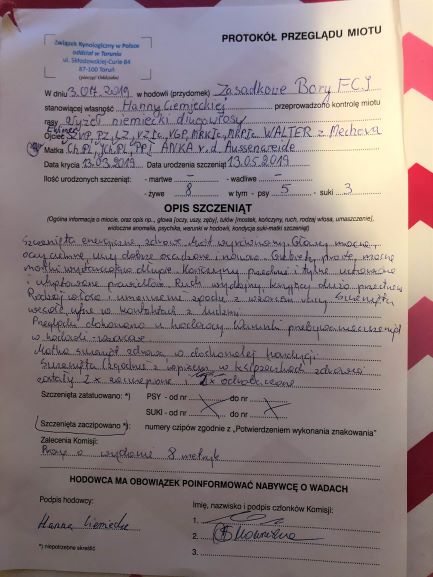 PROTOKÓŁ PRZEGLĄDU MIOTU
Związek Kynologiczny w Polsce
oddział w Toruniu
ul. Skłodowskiej-Curie 84
87-100 Toruń
(pieczęć Oddziału)
W dniu 3.07.2019. w hodowli (przydomek) Zasadkowe Bory FCI
stanowiącej własność Hanny Ciemięckiej przeprowadzono kontrolę miotu
rasy Wyżeł niemiecki długowłosy
Ojciec WALTER z Mechowa
Matka Ch.PL ANKA v.d. Aussenweide
Data krycia 13.03.2019 Data urodzenia szczeniąt 13.05.2019
Ilość urodzonych szczeniąt: - martwe - - wadliwe -
- żywe 8 w tym - psy 5 - suki 3
OPIS SZCZENIĄT
(Ogólna informacja o miocie, oraz opis np., głowa [oczy, uszy, zęby], tułów [mostek, kończyny, ruch, rodzaj włosa, umaszczenie],
widoczne anomalia, psychika, warunki w hodowli, kondycja suki-matki szczeniąt)
Szczenięta energiczne, zdrowe. Miot wyrównany. Głowy mocne,
oczy ciemne, uszy dobrze osadzone i noszone. Grzbiety proste, mocne
mostki Kończyny przednie i tylne ustawione
i prawidłowo. Ruch wydajny, kryjący dużo przestrzeni
Rodzaj włosa i umaszczenie zgodne z wzorcem rasy. Szczenięta
wesołe, ufne w kontaktach z ludźmi.
Przeglądu dokonano u hodowcy. Warunki przebywania szczeniąt
w hodowli - wzorowe.
Matka szczeniąt zdrowa, w doskonałej kondycji.
Szczenięta zgodnie z wpisem w książeczkach zdrowia
zostały 2x zaszczepione i odrobaczone
Szczenięta zatatuowano: *) PSY - od nr do nr
SUKI - od nr do nr
Szczenięta zaczipowano *): numery czipów zgodnie z „Potwierdzeniem wykonania znakowania"
Zalecenia Komisji:
Proszę o wydanie 8 metryk
HODOWCA MA OBOWIĄZEK POINFORMOWAĆ NABYWCĘ O WADACH
Podpis hodowcy: Imię, nazwisko i podpis członków Komisji:
Hanna Ciemięcka 1.
2.
*) niepotrzebne skreślić 3.